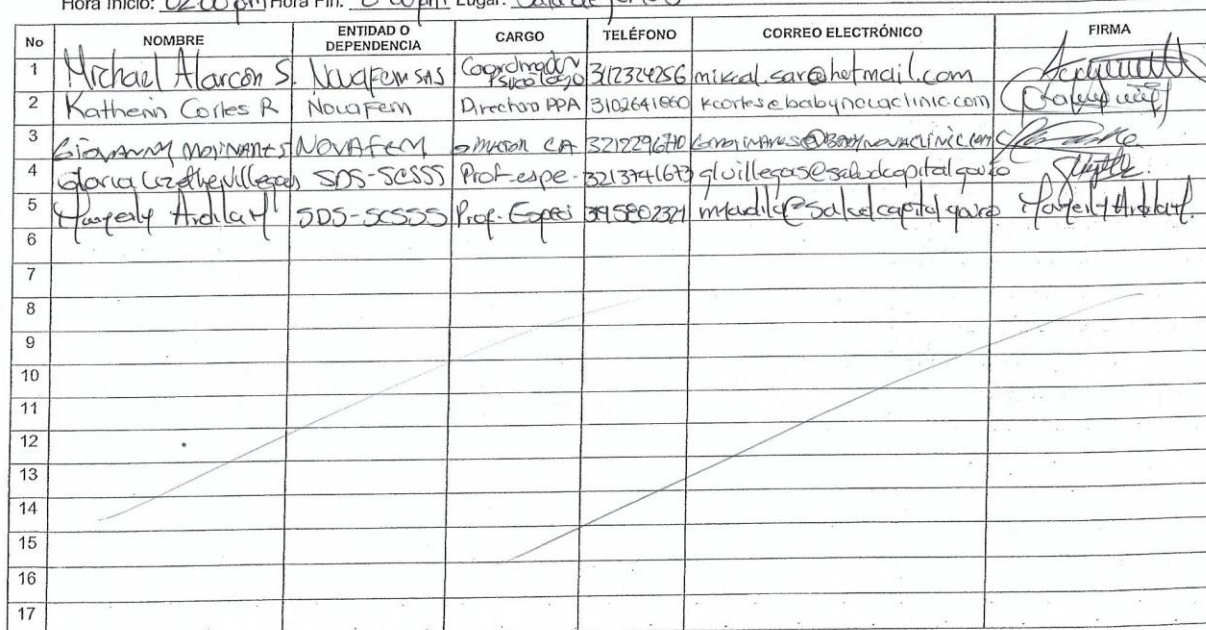 Hora Inicio: 02:00 pm Hora Fin: 00pm Lugar: Sala de
No NOMBRE ENTIDAD O DEPENDENCIA CARGO TELÉFONO CORREO ELECTRÓNICO FIRMA
1 Michael Alarcón S. Novafem SAS Coordinador Psicologo 3112324256 mikcal.sar@hotmail.com
2 Katherin Cortes R Novafem Directora PPA 3102641860 kcortes@babynovaclinic.com
3 Giovanny Molinares NovAfem CA 3212296710
4 Gloria Lizethe Villegas SDS-SCSSS Prof-espe- 3213741673 glvillegas@saludcapital.gov.co
5 Ardila SDS-SCSSS Prof-Especi
6
7
8
9
10
11
12
13
14
15
16
17